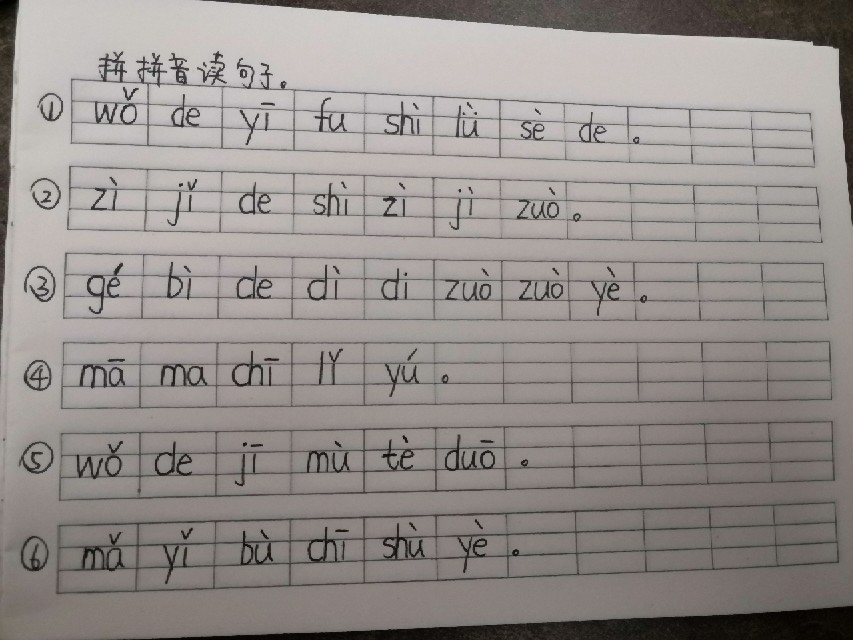 拼拼音读句子。
① wǒ de yī fu shì lǜ sè de 。
② zì jǐ de shì zì jì zuò 。
③ gé bì de dì di zuò zuò yè 。
④ mā ma chī lǐ yú 。
⑤ wǒ de jī mù tè duō 。
⑥ mǎ yǐ bù chī shù yè 。